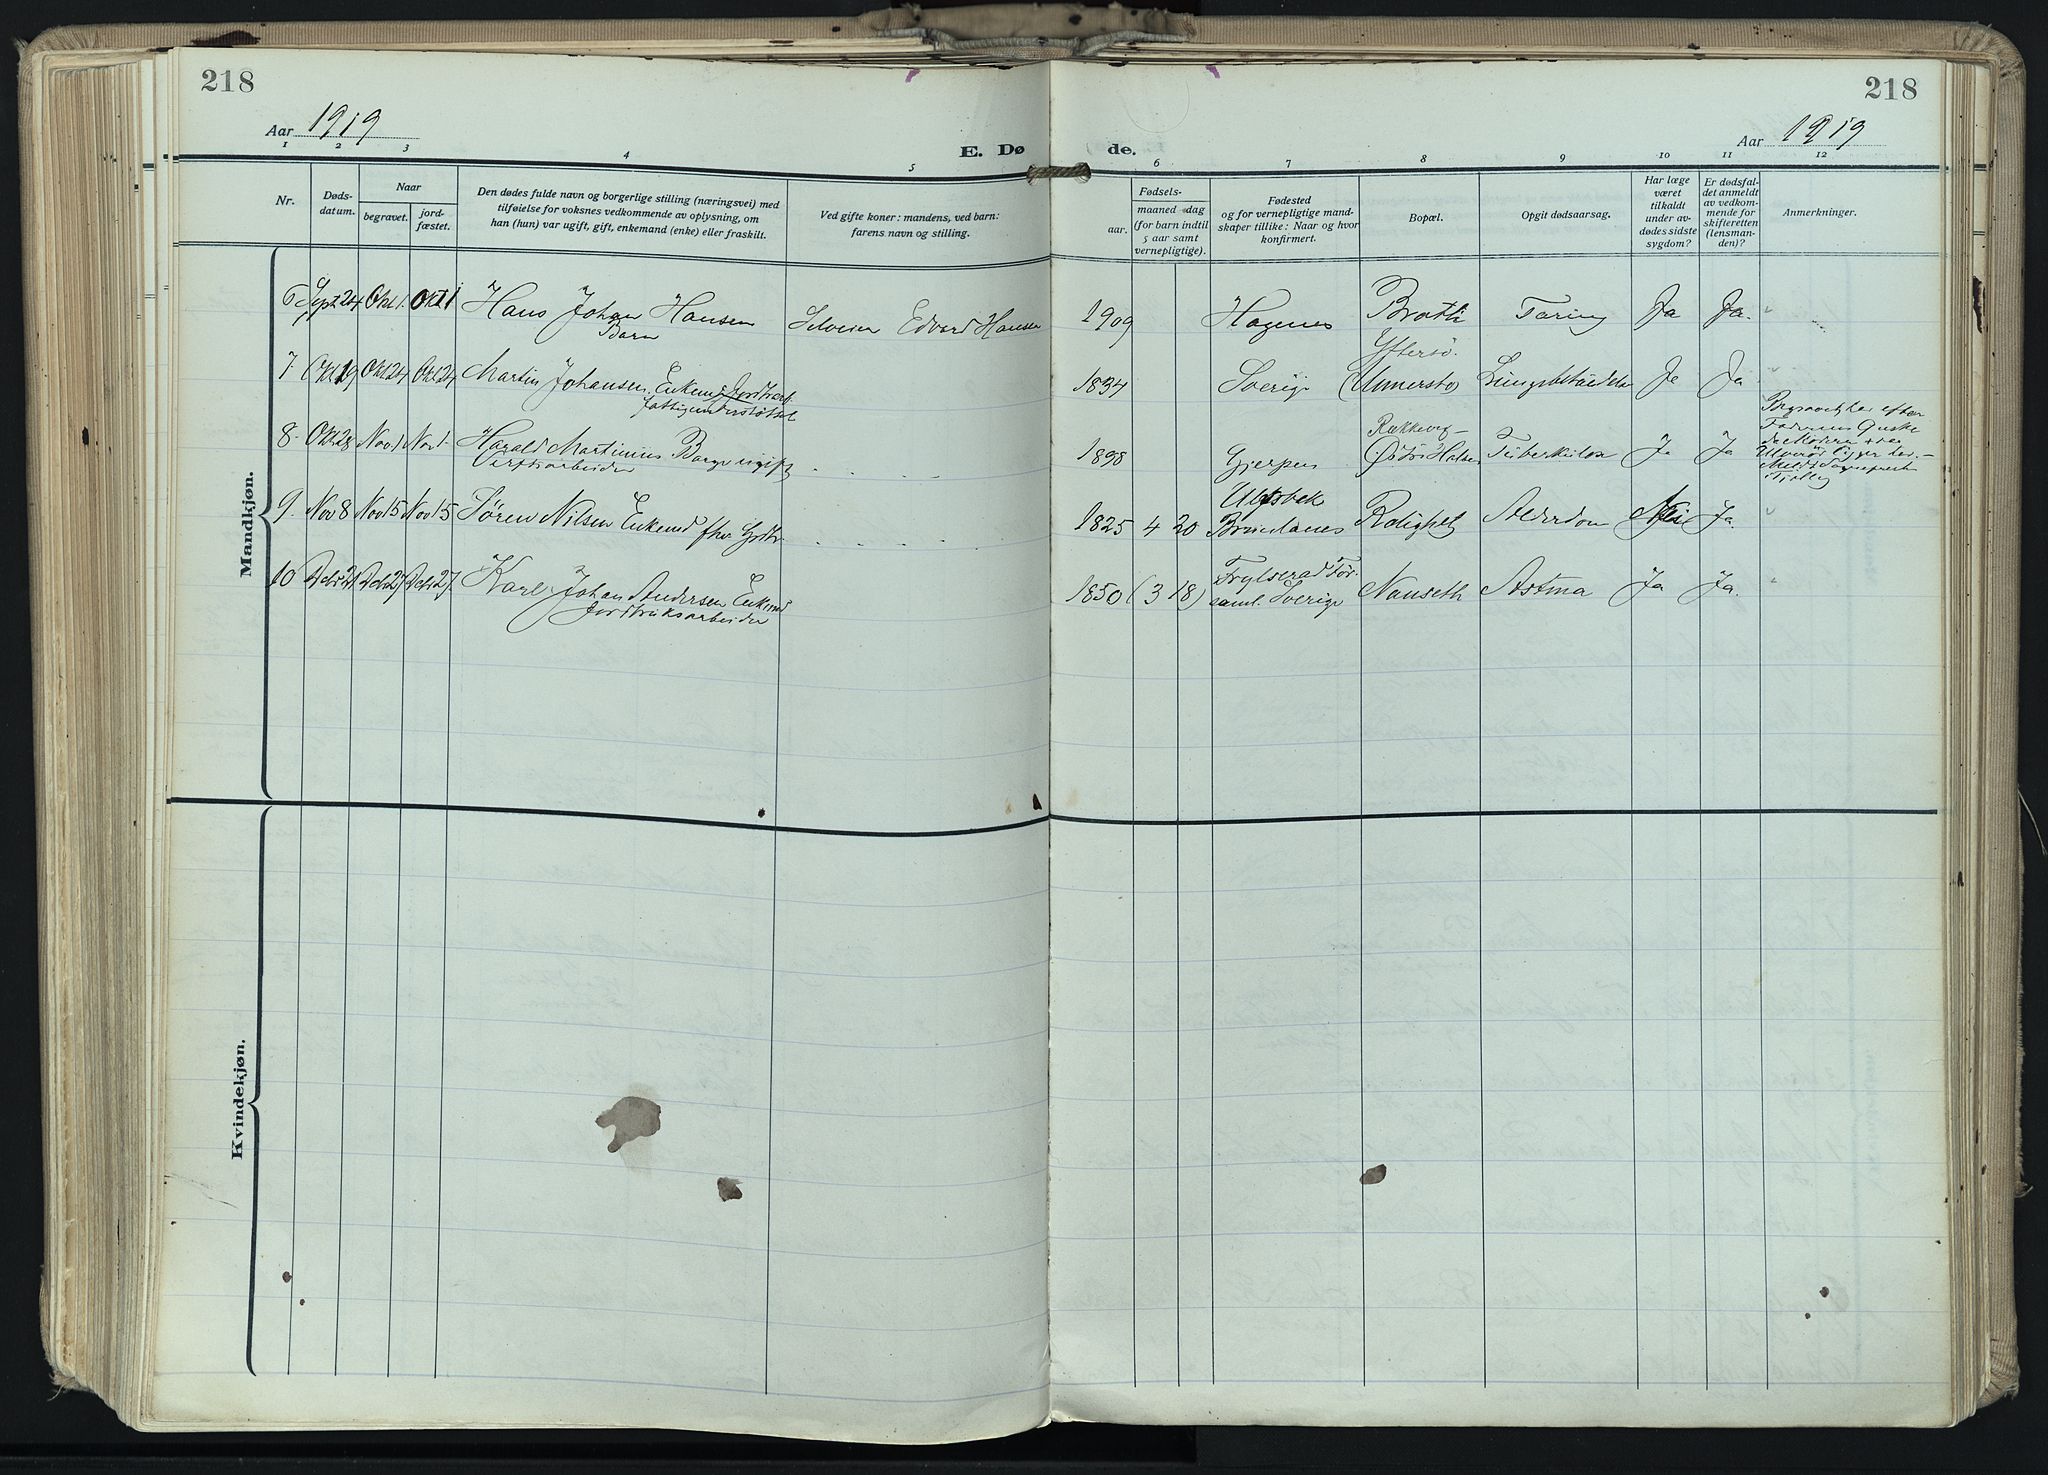 218
218
Aar 1919
Aar 1919
E. Dø
de.
1 2 3 4 5
6 7 8 9 10 11 12
Nr.
Døds-
datum.
Naar
begravet.
jord-
fæstet.
Den dødes fulde navn og borgerlige stilling (næringsvei) med
tilføielse for voksnes vedkommende av oplysning, om
han (hun) var ugift, gift, enkemand (enke) eller fraskilt.
Ved gifte koner: mandens, ved barn:
farens navn og stilling.
Fødsels-
aar.
maaned dag
(for barn indtil
5 aar samt
vernepligtige).
Fødested
og for vernepligtige mand-
skaper tillike: Naar og hvor
konfirmert.
Bopæl.
Opgit dødsaarsag.
Har læge
været
tilkaldt
under av-
dødes sidste
sygdom?
Er dødsfal-
det anmeldt
av vedkom-
mende for
skifteretten
(lensman-
den)?
Anmerkninger.
Mandkjøn.
6 Sept 24 Okt. 1 Okt 1 Hans Johan Hansen
Barn
Edvard Hansen
1909 Hagenes Bratli Tæring Ja Ja. "
7. Okt 19 Okt 24 Okt 24 Martin Johansen. Enkem.
1834 Sverige Lungebetændelse Ja Ja "
8. Okt 28 Nov 1 Nov 1. Harald Martinius Berge ugift
1898 Gjerpen Østre Halsen Tuberkulose Ja Ja
9. Nov 8 Nov 15 Nov 15 Søren Nilsen Enkemd fhv. Gdbr.
1825 4 20 Brunlanes Rolighet Alderdom Nei Ja. "
10 Dcbr 21 Dcbr 27 Dcbr 27. Karl Johan Andersen Enkemd
Jordbruksarbeider
1850 (3 18) saml. Sverige Nanseth Astma Ja Ja. "
Kvindekjøn.